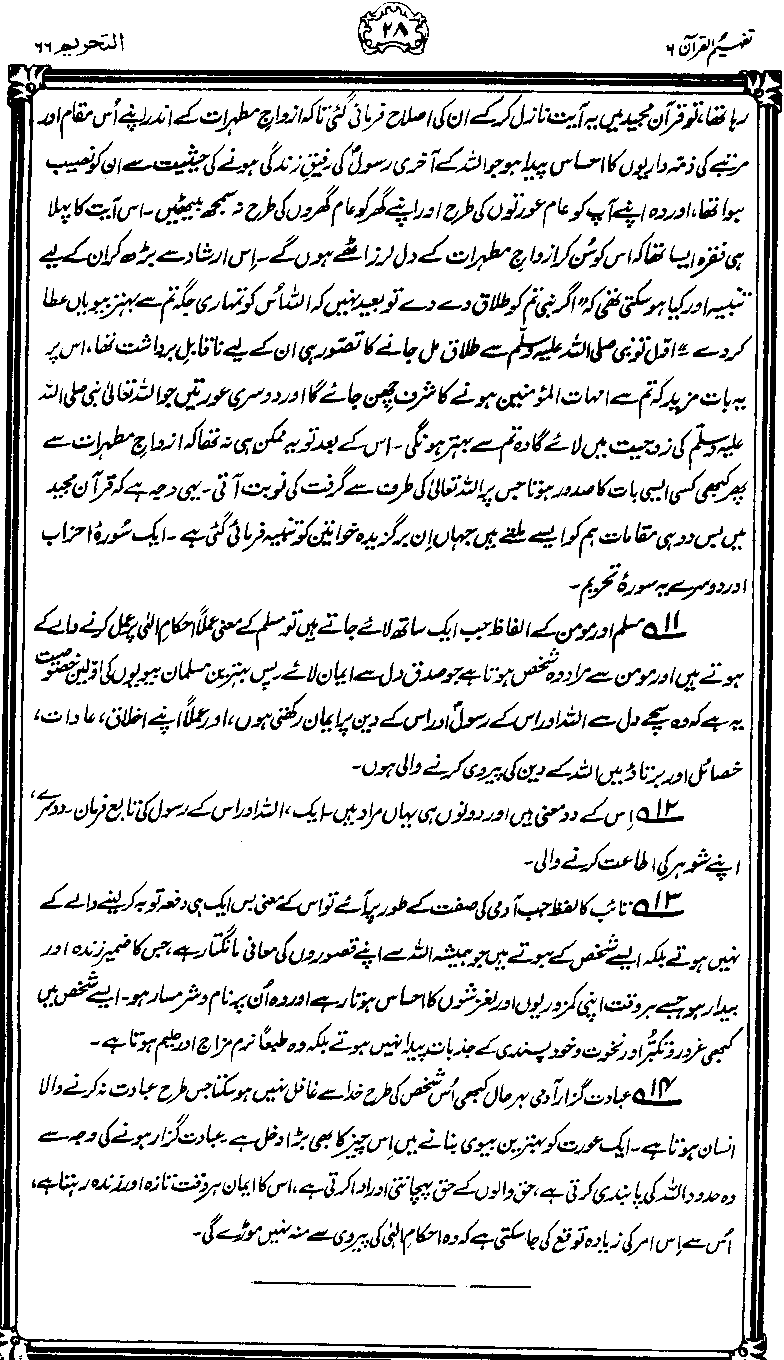 تفہیم القرآن ۶
۲۸
التحریم ۶۶
رہا تھا، تو قرآن مجید میں یہ آیت نازل کر کے ان کی اصلاح فرمائی گئی تاکہ ازواجِ مطہرات کے اندر اپنے اُس مقام اور
مرتبے کی ذمہ داریوں کا احساس پیدا ہو جو اللہ کے آخری رسولؐ کی رفیقِ زندگی ہونے کی حیثیت سے ان کو نصیب
ہوا تھا، اور وہ اپنے آپ کو عام عورتوں کی طرح اور اپنے گھر کو عام گھروں کی طرح نہ سمجھ بیٹھیں۔ اس آیت کا پہلا
ہی فقرہ ایسا تھا کہ اس کو سُن کر ازواجِ مطہرات کے دل لرز اٹھے ہوں گے۔ اِس ارشاد سے بڑھ کر ان کے لیے
تنبیہ اور کیا ہو سکتی تھی کہ "اگر نبی تم کو طلاق دے دے تو بعید نہیں کہ اللہ اُس کو تمہاری جگہ تم سے بہتر بیویاں عطا
کر دے"۔ اول تو نبی صلی اللہ علیہ وسلم سے طلاق مل جانے کا تصور ہی ان کے لیے ناقابلِ برداشت تھا، اس پر
یہ بات مزید کہ تم سے امہات المؤمنین ہونے کا شرف چھن جائے گا اور دوسری عورتیں جو اللہ تعالیٰ نبی صلی اللہ
علیہ وسلم کی زوجیت میں لائے گا وہ تم سے بہتر ہونگی۔ اس کے بعد تو یہ ممکن ہی نہ تھا کہ ازواجِ مطہرات سے
پھر کبھی کسی ایسی بات کا صدور ہوتا جس پر اللہ تعالیٰ کی طرف سے گرفت کی نوبت آتی۔ یہی وجہ ہے کہ قرآن مجید
میں بس دو ہی مقامات ہم کو ایسے ملتے ہیں جہاں اِن برگزیدہ خواتین کو تنبیہ فرمائی گئی ہے۔ ایک سُورۂ احزاب
اور دوسرے یہ سورۂ تحریم۔
۱۱ مسلم اور مومن کے الفاظ جب ایک ساتھ لائے جاتے ہیں تو مسلم کے معنی عملاً احکامِ الٰہی پر عمل کرنے والے کے
ہوتے ہیں اور مومن سے مراد وہ شخص ہوتا ہے جو صدقِ دل سے ایمان لائے۔ پس بہترین مسلمان بیویوں کی اولین خصوصیت
یہ ہے کہ وہ سچے دل سے اللہ اور اس کے رسولؐ اور اس کے دین پر ایمان رکھتی ہوں، اور عملاً اپنے اخلاق، عادات،
خصائل اور برتاؤ میں اللہ کے دین کی پیروی کرنے والی ہوں۔
۱۲ اِس کے دو معنی ہیں اور دونوں ہی یہاں مراد ہیں۔ ایک، اللہ اور اس کے رسول کی تابع فرمان۔ دوسرے،
اپنے شوہر کی اطاعت کرنے والی۔
۱۳ تائب کا لفظ جب آدمی کی صفت کے طور پر آئے تو اس کے معنی بس ایک ہی دفعہ توبہ کر لینے والے کے
نہیں ہوتے بلکہ ایسے شخص کے ہوتے ہیں جو ہمیشہ اللہ سے اپنے قصوروں کی معافی مانگتا رہے، جس کا ضمیر زندہ اور
بیدار ہو، جسے ہر وقت اپنی کمزوریوں اور لغزشوں کا احساس ہوتا رہے اور وہ اُن پر نادم و شرمسار ہو۔ ایسے شخص میں
کبھی غرور و تکبُّر اور نخوت و خود پسندی کے جذبات پیدا نہیں ہوتے بلکہ وہ طبعاً نرم مزاج اور حلیم ہوتا ہے۔
۱۴ عبادت گزار آدمی بہر حال کبھی اُس شخص کی طرح خدا سے غافل نہیں ہو سکتا جس طرح عبادت نہ کرنے والا
انسان ہوتا ہے۔ ایک عورت کو بہترین بیوی بنانے میں اِس چیز کا بھی بڑا دخل ہے۔ عبادت گزار ہونے کی وجہ سے
وہ حدود اللہ کی پابندی کرتی ہے، حق والوں کے حق پہچانتی اور ادا کرتی ہے، اس کا ایمان ہر وقت تازہ اور زندہ رہتا ہے،
اُس سے اِس امر کی زیادہ توقع کی جا سکتی ہے کہ وہ احکامِ الٰہی کی پیروی سے منہ نہیں موڑے گی۔